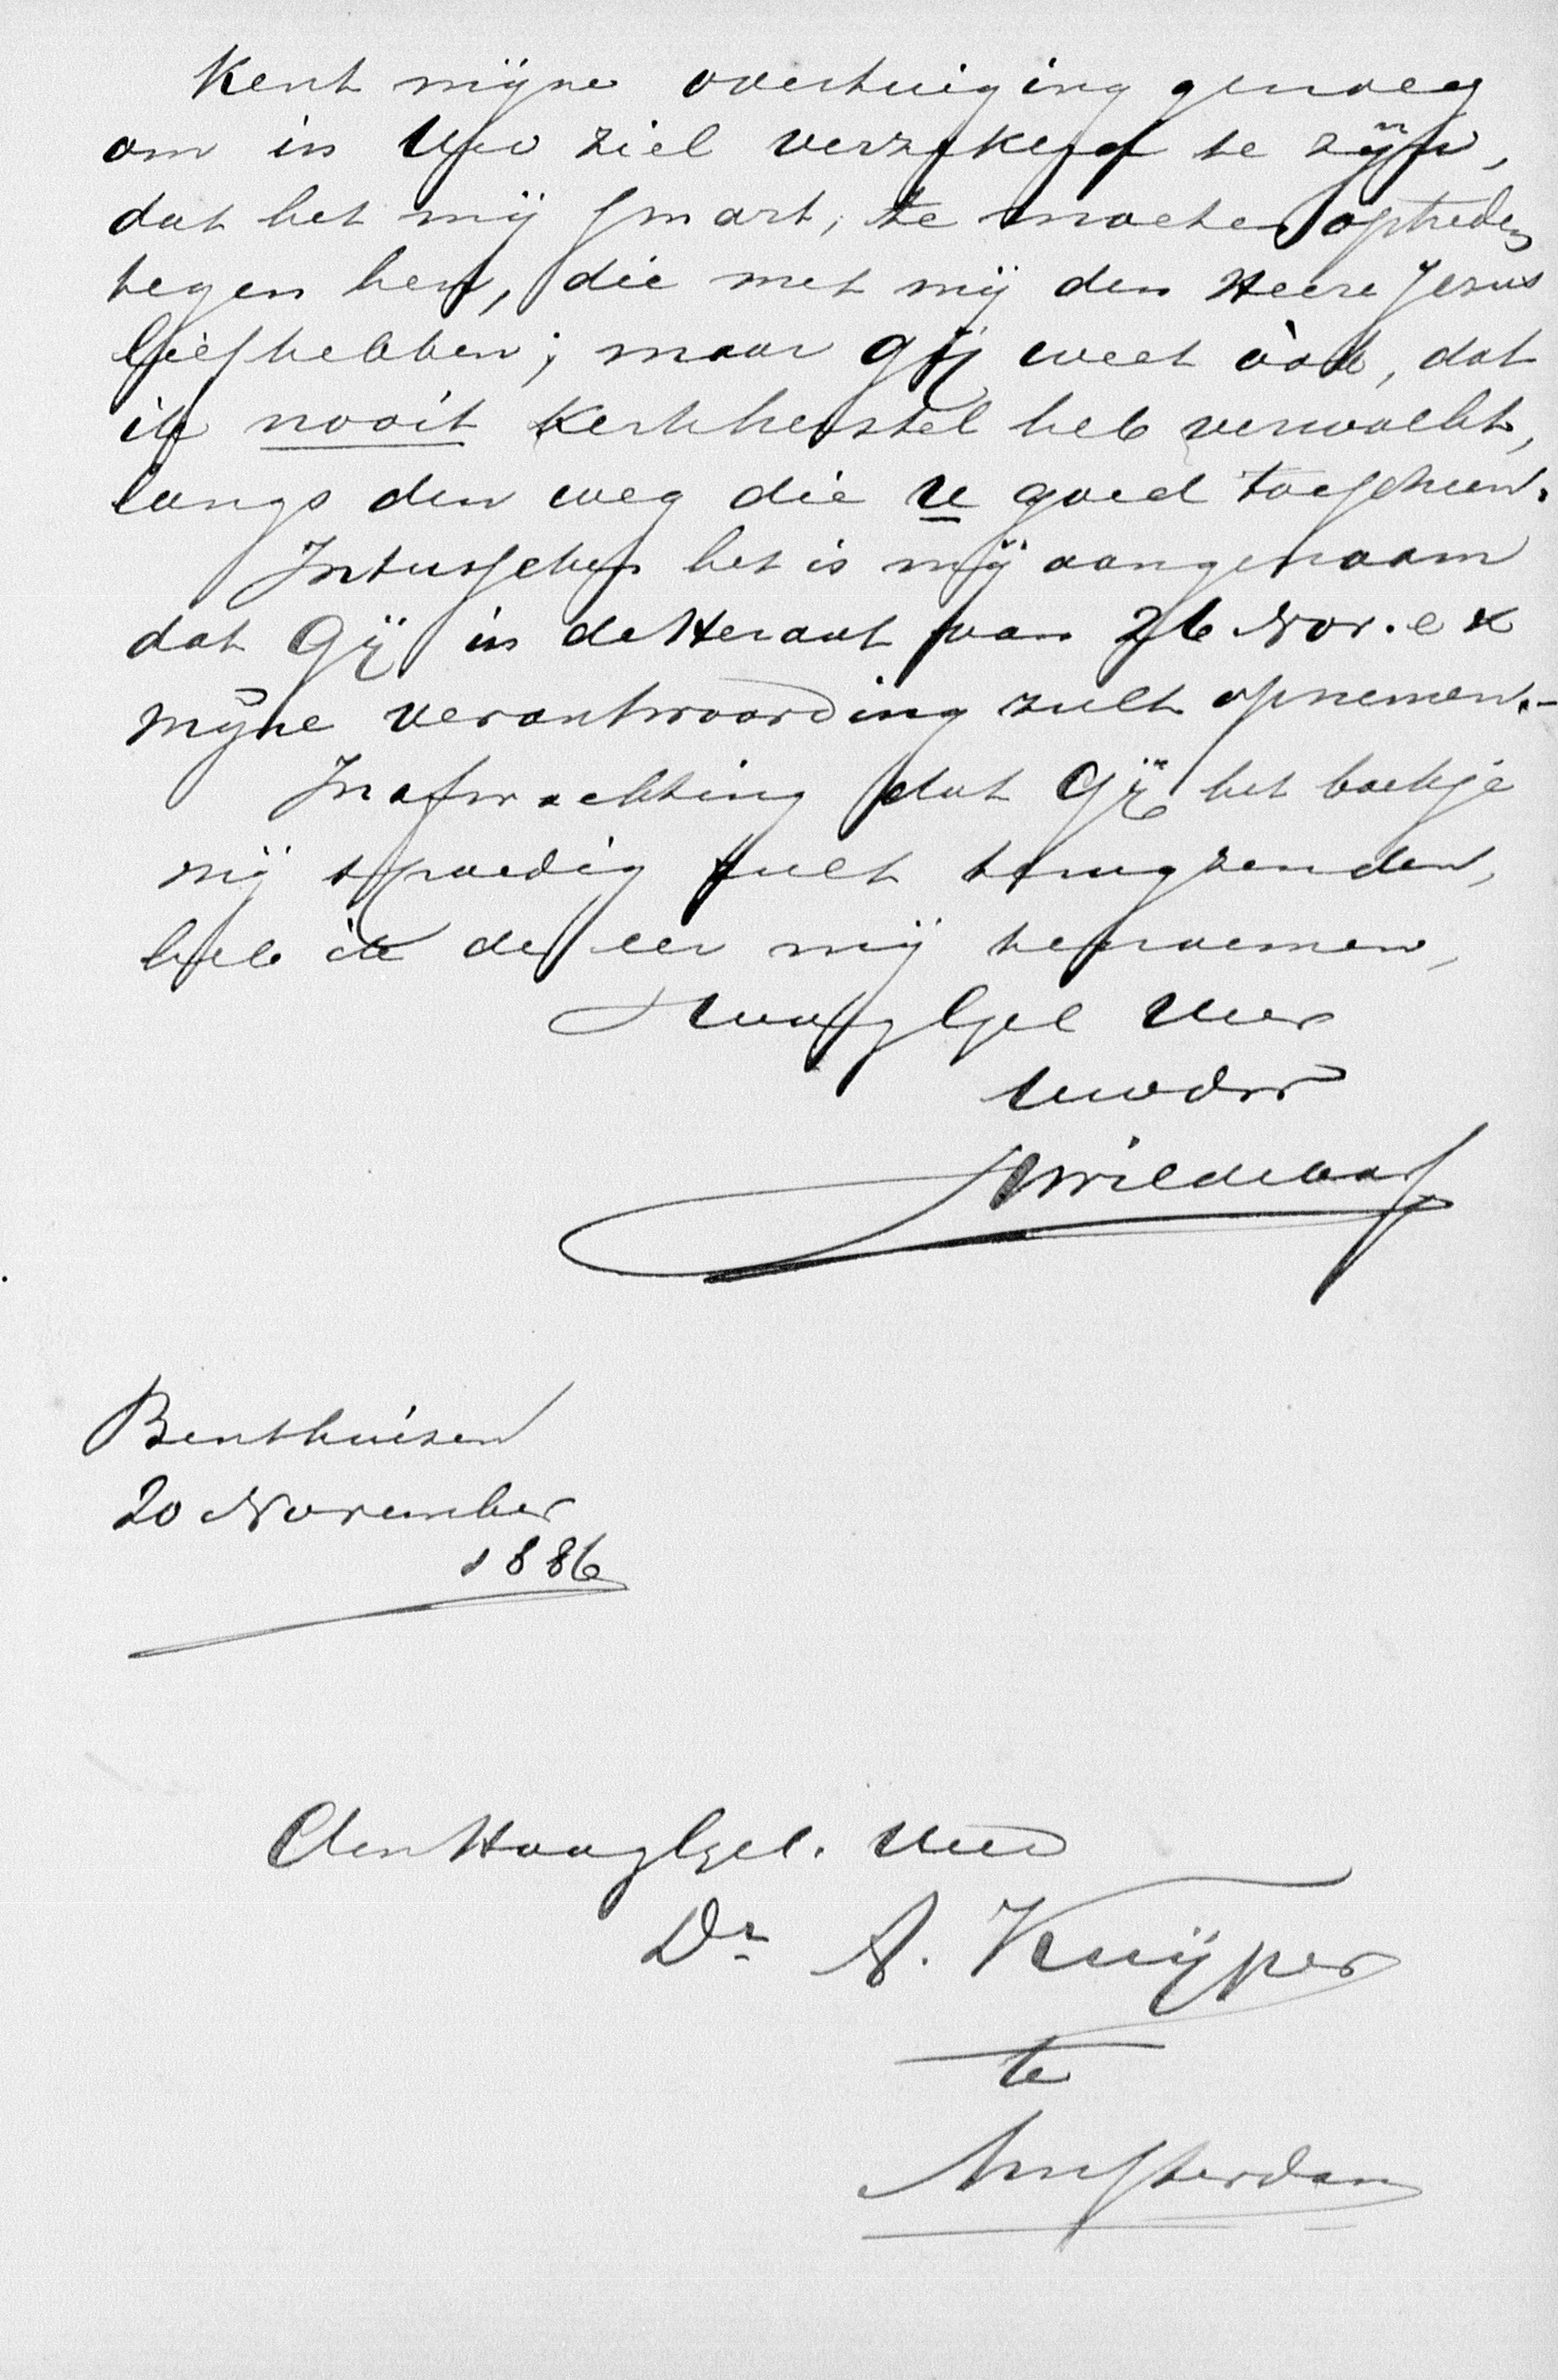 Kent mijne overtuiging genoeg
om in Uw ziel verzekerd te zijn,
dat het mij smart, te moeten optreden
tegen hen, die met mij den Heere Jezus
liefhebben; maar gij weet òòk, dat
ik nooit Kerkherstel heb verwacht,
langs den weg die U goed toescheen.
Intusschen het is mij aangenaam
dat Gij in de Heraut van 26 Nov. e k
mijne verantwoording zult opnemen.-
In afwachting dat Gij het boekje
mij spoedig zult terugzenden,
heb ik de eer mij te noemen,
HoogGel Heer
Uwdw
Wildeboer
Benthuizen
20 November
1886
Den HoogGel. Heer
Dr A. Kuijper
te
Amsterdam